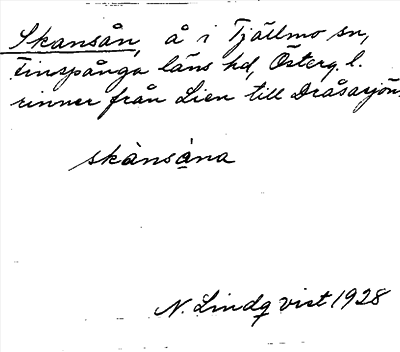 Skansån, å i Tjällmo sn,
Finspånga läns hd, Österg. l.
rinner från Lien till Dråsasjön.
skànsàna
N. Lindqvist 1928